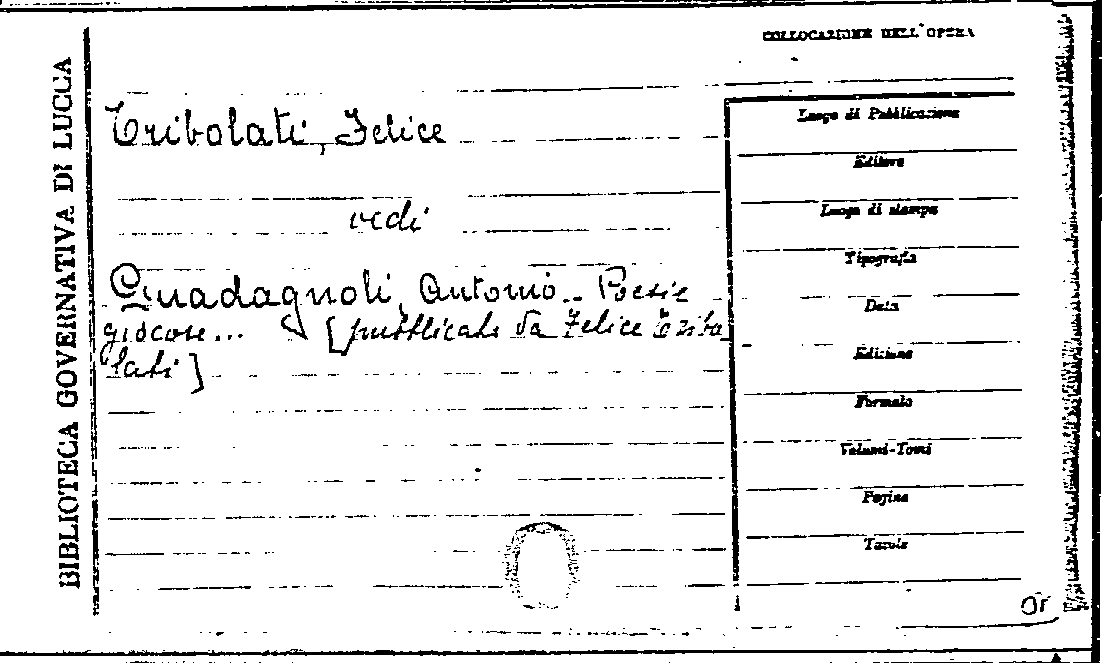 BIBLIOTECA GOVERNATIVA DI LUCCA
COLLOCAZIONE DELL'OPERA
Tribolati, Felice
vedi
Guadagnoli, Antonio.. Poesie
giocose... [pubblicate da Felice Tribo
lati]
Luogo di Pubblicazione
Editore
Luogo di stampa
Tipografia
Data
Edizione
Formato
Volumi-Tomi
Pagine
Tavole